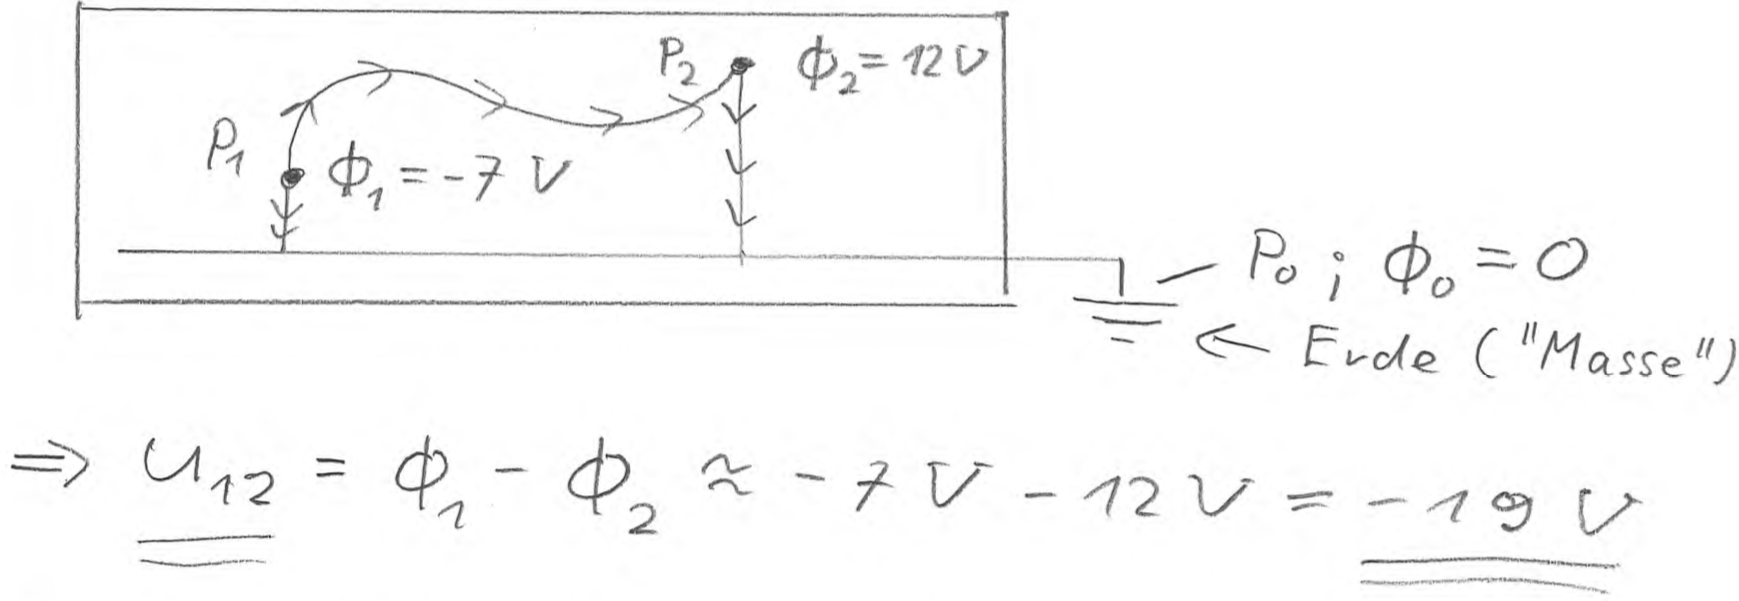 P₂ ϕ₂ = 12 V
P₁ ϕ₁ = -7 V
P₀ ; ϕ₀ = 0
← Erde ("Masse")
⇒ U₁₂ = ϕ₁ - ϕ₂ ≈ -7 V - 12 V = -19 V